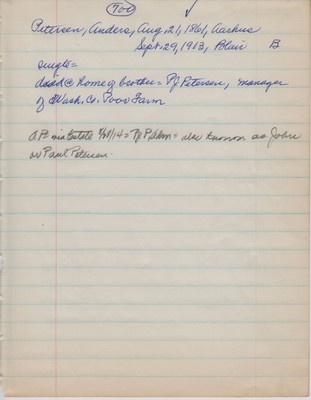 700 ✓
Petersen, Anders, Aug. 21, 1861, Aarhus
Sept. 29, 1913, Blair B
single=
died @ home of brother= PJ Petersen, manager
of Wash. Co. Poor Farm
Estate = also known as John
or Paul Petersen